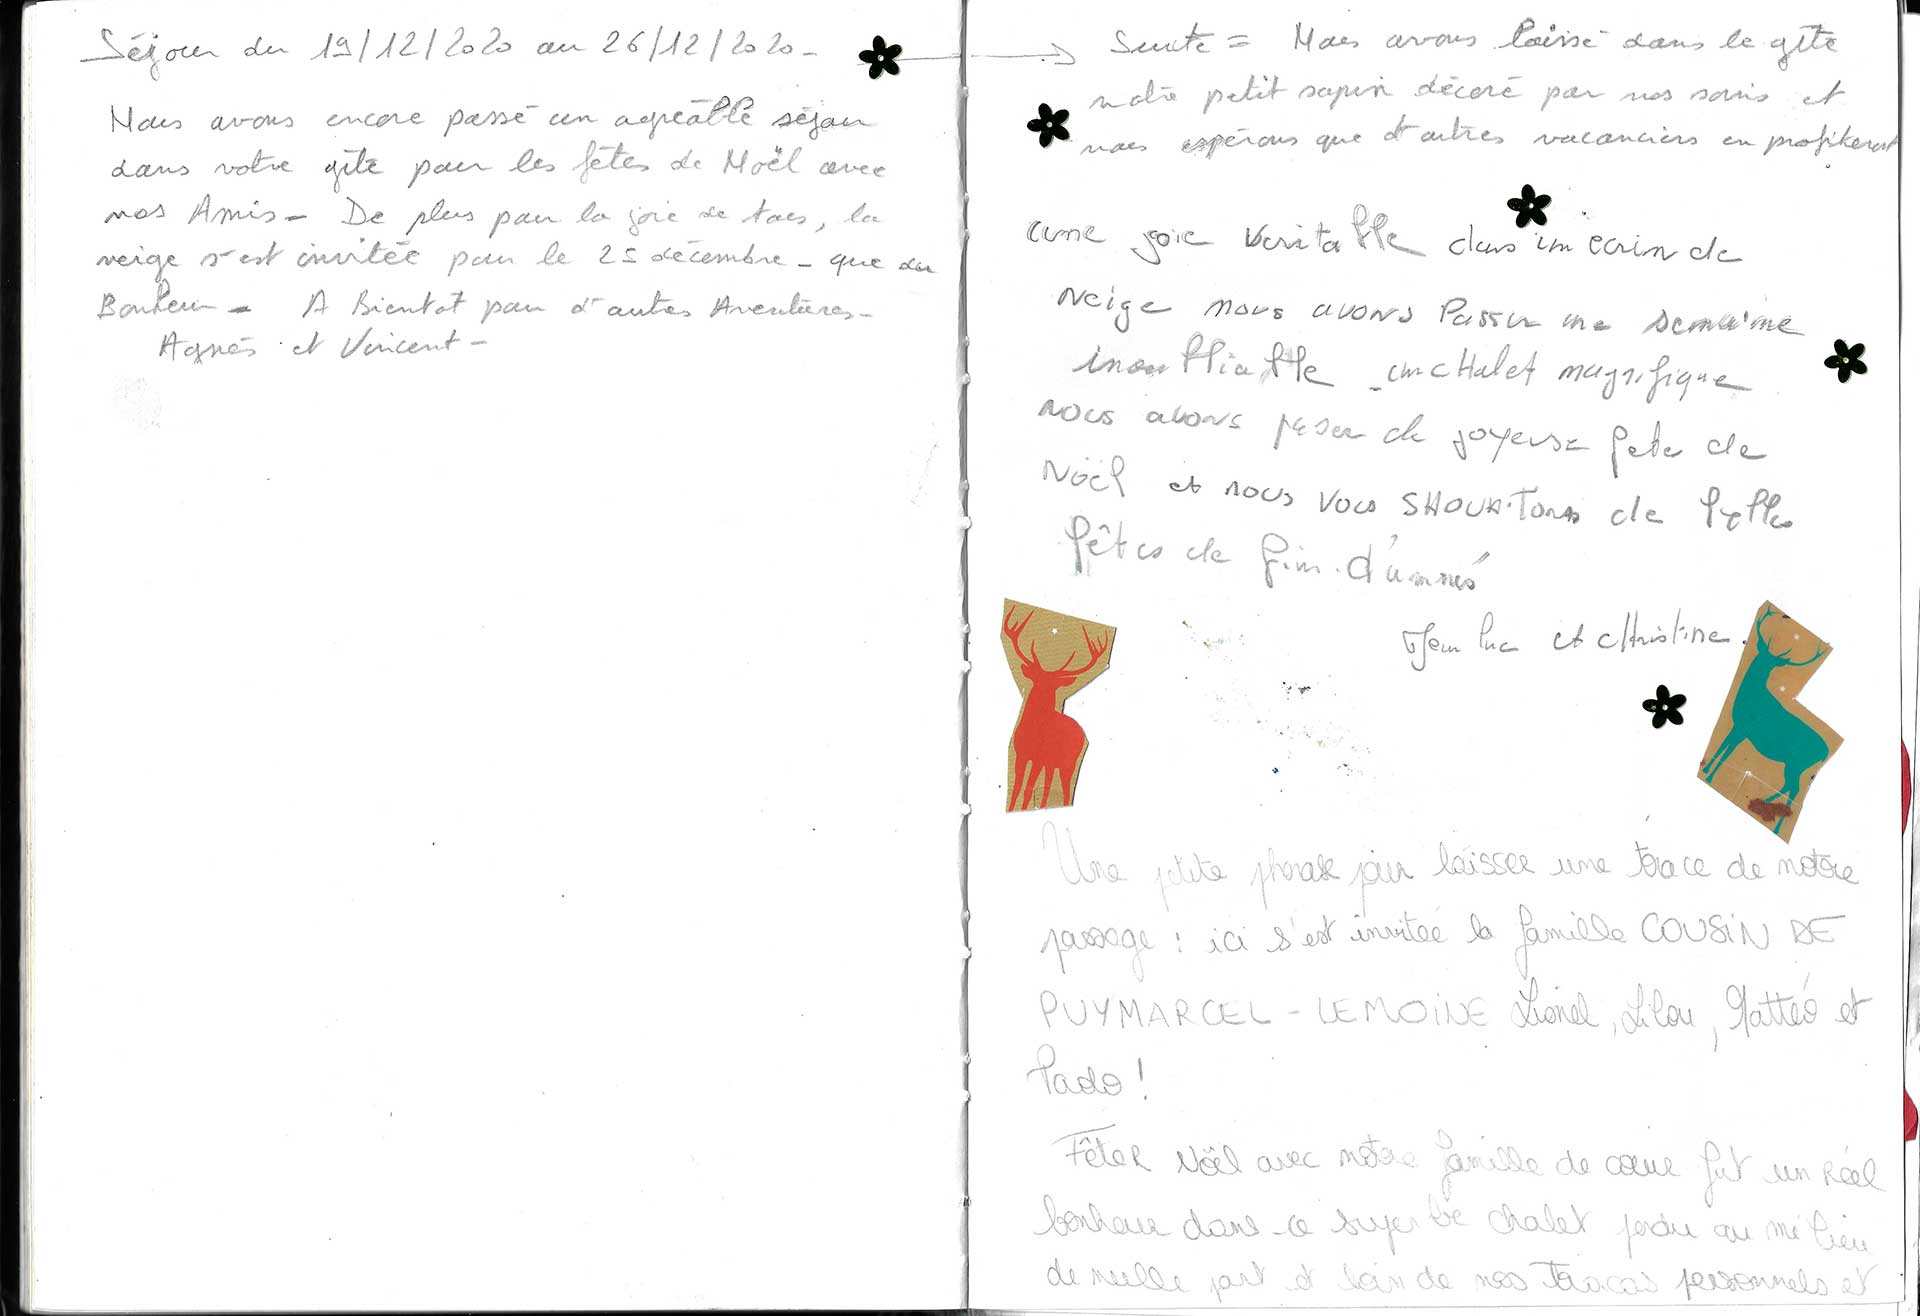 Séjour du 19/12/2020 au 26/12/2020 -
Nous avons encore passé un agréable séjour
dans votre gîte pour les fêtes de Noël avec
nos Amis - De plus pour la joie de tous, la
neige s'est invitée pour le 25 décembre - que du
Bonheur - A Bientot pour d'autres Aventures -
Agnès et Vincent -
Suite = Nous avons laissé dans le gîte
notre petit sapin décoré par nos soins et
nous espérons que d'autres vacanciers en profiteront
une joie veritable dans un ecrin de
Neige nous avons Passer une semaine
inoubliable un cHalet magnifique
nous avons passer de joyeuse fete de
Noël et nous vous SHOUAITons de belles
fêtes de fin d'année
Jean luc et cHristine.
Une petite phrase pour laisser une trace de notre
passage : ici s'est invitée la famille COUSIN DE
PUYMARCEL - LEMOINE Lionel, Lilou, Mattéo et
Pado !
FÊTER Noël avec notre famille de cœur fut un Réel
bonheur dans ce superbe chalet perdu au milieu
de nulle part et loin de nos tracas personnels et